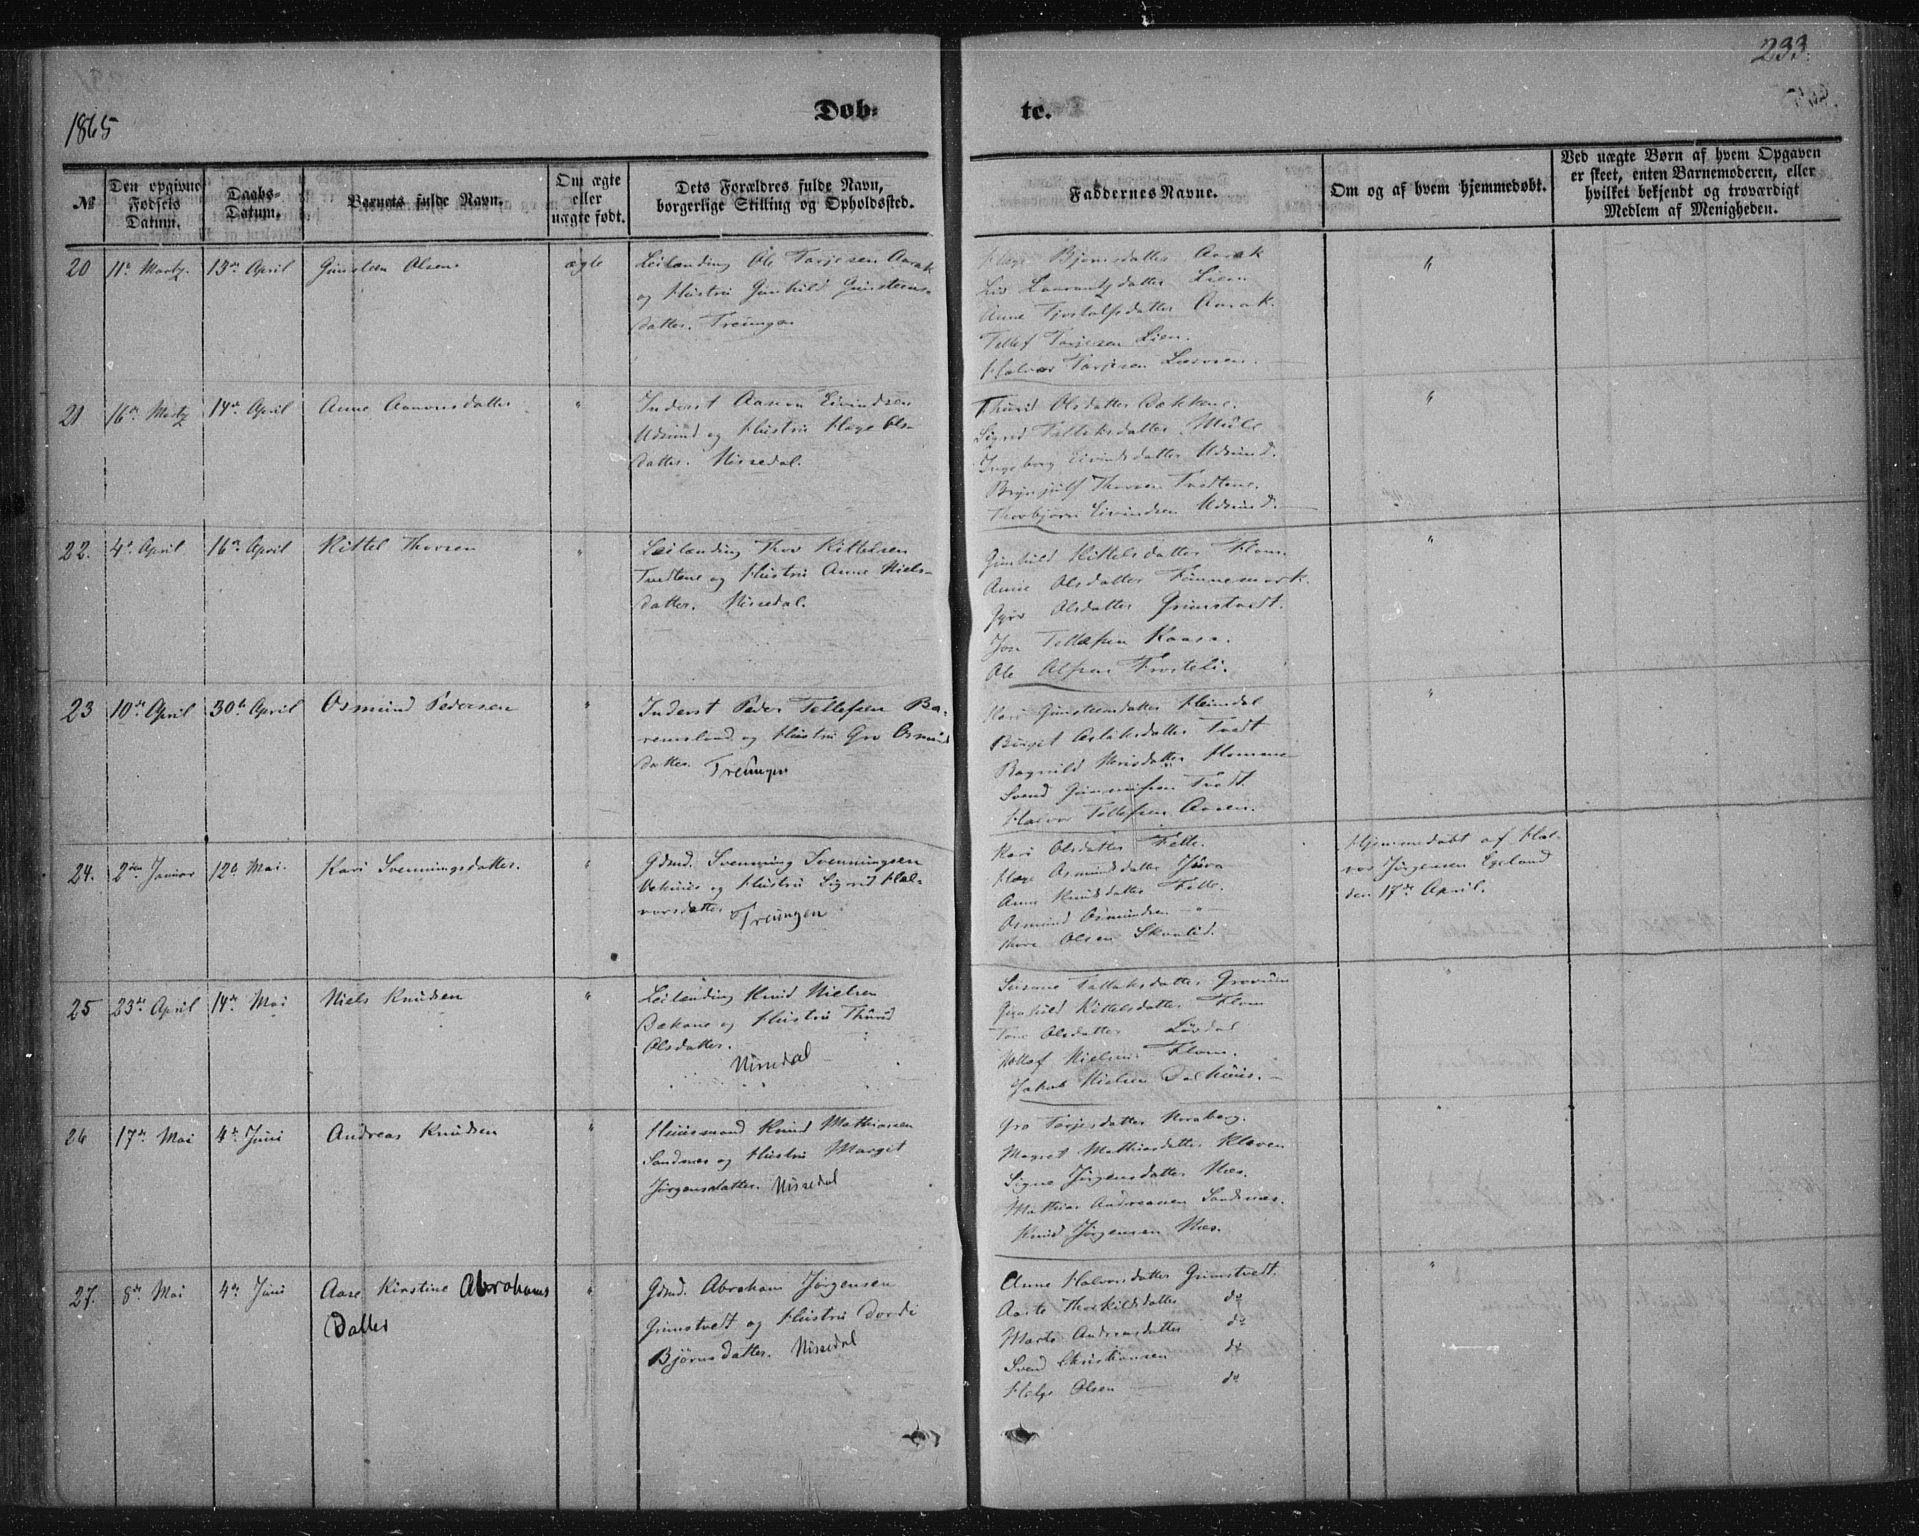 233.
1865
Døb-
te.
№
Den opgivne
Fødsels
Datum.
Daabs-
Datum.
Barnets fulde Navn.
Om ægte
eller
uægte født.
Dets Forældres fulde Navn,
borgerlige Stilling og Opholdssted.
Faddernes Navne.
Om og af hvem hjemmedøbt.
Ved uægte Børn af hvem Opgaven
er skeet, enten Barnemoderen, eller
hvilket bekjendt og troværdigt
Medlem af Menigheden.
20 11te Martz. 13de April Gunsten Olsen ægte
Leilending Ole Tarjesen Aarak
og Hustru Gunhild Gunstens-
datter. Treungen
Hæge Bjørnsdatter Aarak
Liv Laurantzdatter Lien
Anne Tjostolfsdatter Aarak.
Tellef Tarjesen Lien.
Halvor Tarjesen
"
21 16de Martz 14de April Anne Aanonsdatter "
Inderst Aanon Eivindsen
Udsund og Hustru Hæge Ols-
datter. Nissedal.
Thurid Olsdatter Bækkene.
Sigrid Tallaksdatter Mule
Ingeborg Eivindsdatter Udsund.
Brynjulf Thorsen Tvedtene.
Thorbjørn Eivindsen Udsund.
"
22. 4de April 16de April Kittel Thorsen "
Leilending Thor Kittelsen
Tvedtene og Hustru Anne Niels-
datter. Nissedal.
Gunhild Kittelsdatter Flom.
Anne Olsdatter Finnemark.
Gyro Olsdatter Grimstvedt.
Jon Tellefsen Kaasa.
Ole Alfsen
"
23 10de April 30te April Osmund Pedersen "
Inderst Peder Tellefsen Ba-
remsland og Hustru Gro Osmunds
datter Treungen
Kari Gunstensdatter Heimdal
Birget Aslaksdatter Tvedt
Ragnild Nirisdatter Homme
Svend Tvedt.
Halvor Tellefsen Aasen.
"
24. 2den Januar 12te Mai. Kari Svenningsdatter. "
Gdmd. Svenning Svenningsen
og Hustru Sigrid Hal-
vorsdatter Treungen
Kari Olsdatter Felle.
Hæge Osmundsdatter Juva
Anne Knudsdatter Felle.
Osmund Osmundsen — " —
Thore Olsen Skaalid.
Hjemmedøbt af Hal-
vor Jørgensen Egeland
den 17de April.
25 23de April 14de Mai Niels Knudsen "
Leilending Knud Nielsen
Bækene og Hustru Thurid
Olsdatter.
Nissedal
Susane Tallaksdatter Grovum
Gunhild Kittelsdatter Flom
Tone Olsdatter Løvdal
Nielsen Flom.
Jakob Nielsen Dalhuus.
"
26 17de Mai 4de Juni Andreas Knudsen "
Huusmand Knud Mathiassen
Sandnes og Hustru Margit
Jørgensdatter. Nissedal
Gro Tarjesdatter Noraberg.
Magret Mathiasdatter Kleven
Signe Jørgensdatter Næs.
Mathias Andreassen Sandnæs.
Knud Jørgensen Næs.
"
27. 8de Mai 4de Juni Aase Kirstine Abrahams "
Datter
Gdmd. Abraham Jørgensen
Grimstvedt og Hustru Dordi
Bjørnsdatter. Nissedal
Anne Halvorsdatter Grimstvedt.
Aaste Thorkildsdatter do
Marte Andreasdatter do
Svend Christiansen do
Helge Olsen do
"